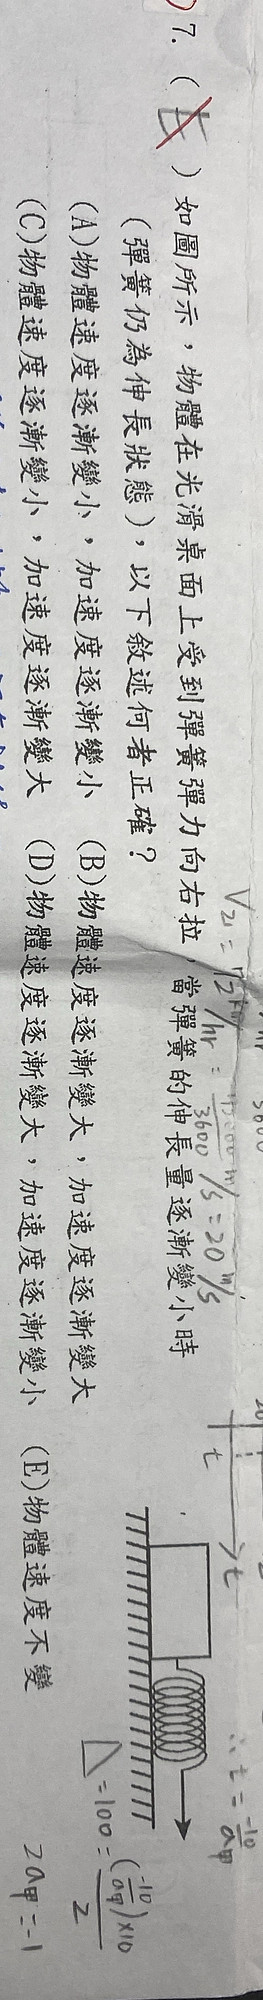 7. ( E ) 如圖所示，物體在光滑桌面上受到彈簧彈力向右拉，當彈簧的伸長量逐漸變小時
(彈簧仍為伸長狀態)，以下敘述何者正確？
(A)物體速度逐漸變小，加速度逐漸變小 (B)物體速度逐漸變大，加速度逐漸變大
(C)物體速度逐漸變小，加速度逐漸變大 (D)物體速度逐漸變大，加速度逐漸變小 (E)物體速度不變
t
t
∴ t = -10/a甲
△ = 100 = (-10/a甲)×10 / 2
2a甲 = -1